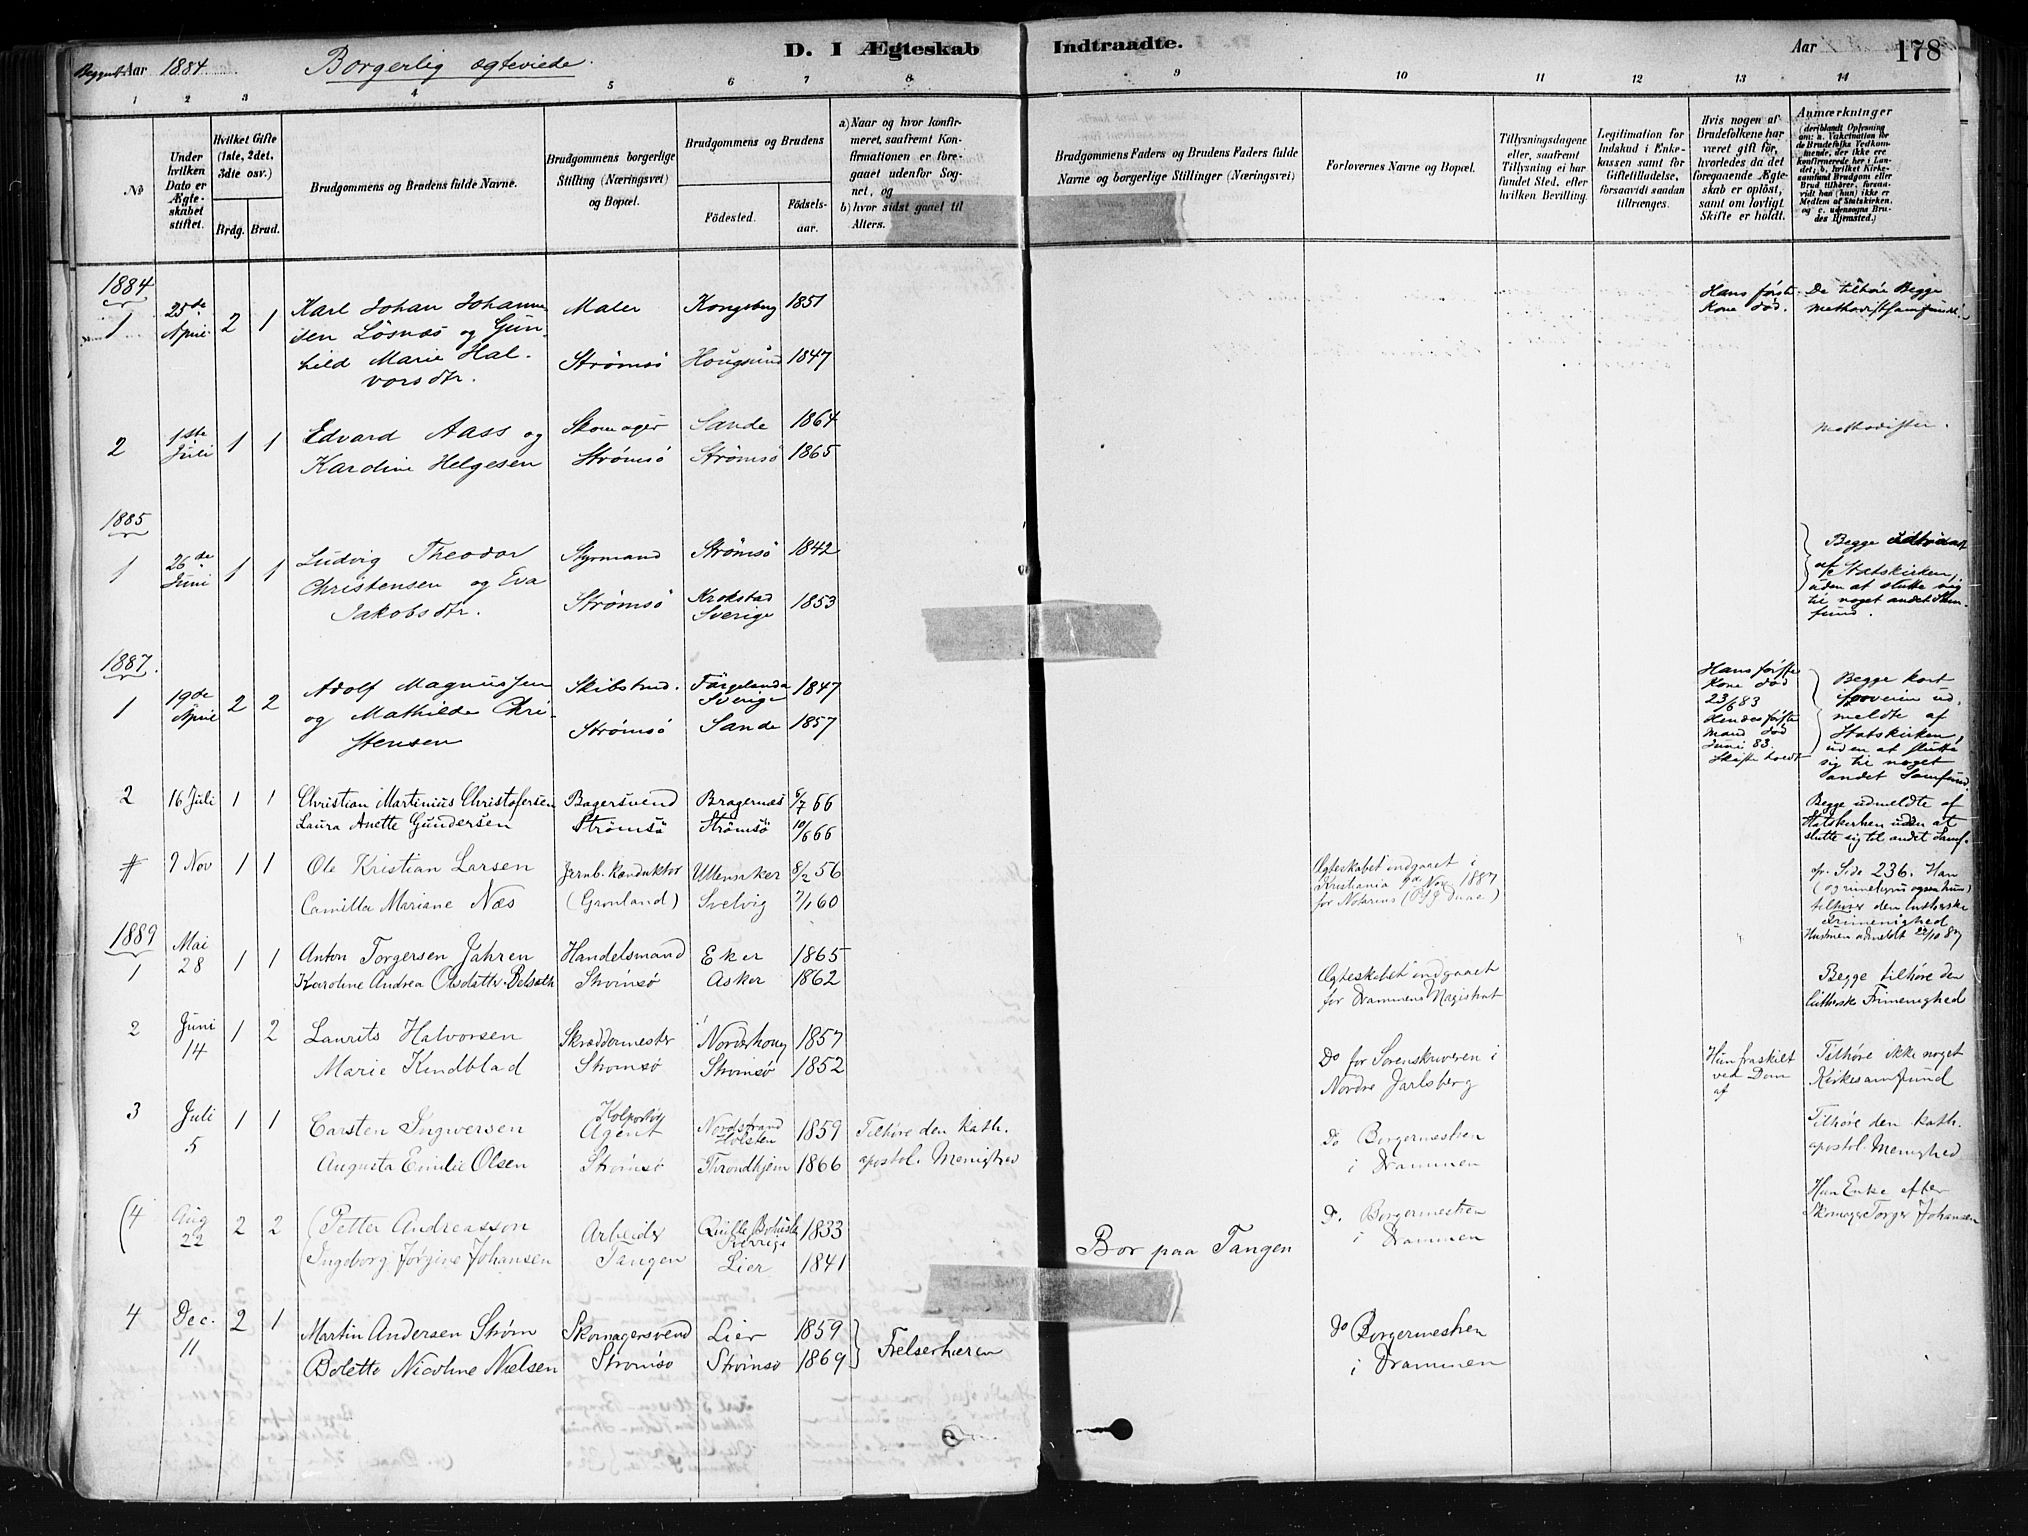 Begynt Aar 1884
Borgerlig ægteviede.
D. I Ægteskab Indtraadte.
Aar 178
1 2 3 4 5 6 7 8 9 10 11 12 13 14
No
Under hvilken Dato er Ægteskabet stiftet.
Hvilket Gifte (1ste, 2det, 3die osv.)
Brdg. Brud.
Brudgommens og Brudens fulde Navne.
Brudgommens borgerlige Stilling (Næringsvei) og Bopæl.
Brudgommens og Brudens
Födested. Födselsaar.
a) Naar og hvor konfirmeret, saafremt Konfirmationen er foregaaet udenfor Sognet, og
b) hvor sidst gaaet til Alters.
Brudgommens Faders og Brudens Faders fulde Navne og borgerlige Stillinger (Næringsvei)
Forlovernes Navne og Bopæl.
Tillysningsdagene eller, saafremt Tillysning ei har fundet Sted, efter hvilken Bevilling.
Legitimation for Indskud i Enkekassen samt for Giftetilladelse, forsaavidt saadan tiltrænges.
Hvis nogen af Brudefolkene har været gift før, hvorledes da det foregaaende Ægteskab er opløst, samt om lovligt Skifte er holdt.
Anmærkninger
(deriblandt Oplysning om: a. Vakcination for de Brudefolks Vedkommende, der ikke ere konfirmerede her i Landet; b. hvilket Kirkesamfund Brudgom eller Brud tilhører, forsaavidt han (hun) ikke er Medlem af Statskirken, og c. udensogns Brudes Hjemsted.)
1884
1 25de April 2 1
Karl Johan Johannesen Løsnæs og Gunhild Marie Halvorsdtr.
Maler Strømsö
Kongsberg 1851
Hougsund 1847
Hans første Kone død.
De tilhøre Begge Methodistsamfundet.
2 1ste Juli 1 1
Edvard Aass og Karoline Helgesen
Skomager Strømsö
Sande 1864
Strømsö 1865
Methodister.
1885
1 26de Juni 1 1
Ludvig Theodor Christensen og Eva Jakobsdtr.
Styrmand Strømsö
Strømsö 1842
Krokstad Sverige 1853
Begge udtraadt af Statskirken, uden at slutte sig til noget andet Samfund.
1887.
1 19de April 2 2
Adolf Magnussen og Mathilde Christensen
Skibstmd. Strømsö
Färgelanda Sverige 1847
Sande 1857
Hans første Kone død 23/6 83
Hendes første Mand død Juni 83. Skifte holdt
Begge kort forveien udmeldte af Statskirken, uden at slutte sig til noget andet Samfund.
2 16 Juli 1 1
Christian Martinius Christofersen
Laura Anette Gundersen
Bagersvend Strømsö
Bragernæs 6/7 66
Strømsö 10/6 66
Begge udmeldte af Statskirken uden at slutte sig til andet Samf.
# 9 Nov 1 1
Ole Kristian Larsen
Camilla Mariane Næs
Jernb. konduktör (Grønland)
Ullensaker 8/2 56
Svelvig 7/1 60
Ægteskabet indgaaet i Kristiania 9de Nov 1887 for Notarius
cfr. Side 236. Han (og rimeligvis ogsaa hun) tilhører den lutherske Frimenighed
Hustruen udmeldt 22/10 87
1889
1 Mai 28 1 1
Anton Torgersen Jahren
Karoline Andrea Olsdatter Belseth
Handelsmand Strömsö
Eker 1865
Asker 1862
Ægteskabet indgaaet for Drammens Magistrat
Begge tilhøre den lutherske Frimenighed
2 Juni 14 1 2
Laurits Halvorsen
Marie Kindblad
Skræddermester Strömsö
Norderhoug 1857
Strömsö 1852
Do for Sorenskriveren i Nordre Jarlsberg
Hun fraskilt ved Dom af
Tilhøre ikke noget Kirkesamfund
3 Juli 5 1 1
Carsten Ingwersen
Augusta Emilie Olsen
Kolportör Agent Strömsö
Nordstrand Holsten 1859
Throndhjem 1866
Tilhøre den kath. apostol. Menighed
Do Borgermesteren i Drammen
Tilhøre den kath. apostol. Menighed
(4 Aug 22 2 2
(Petter Andreasson
(Ingeborg Jørgine Johansen
Arbeider Tangen
Quille Bohuslæn Sverrige 1833
Lier 1841
Bor paa Tangen
Do. Borgermesteren i Drammen
Hun Enke efter Skomager Torger Johansen
4 Dec. 11 2 1
Martin Andersen Strøm
Bolette Nicoline Nielsen
Skomagersvend Strömsö
Lier 1859
Strömsö 1869
Frelserhæren
Do Borgermesteren i Drammen